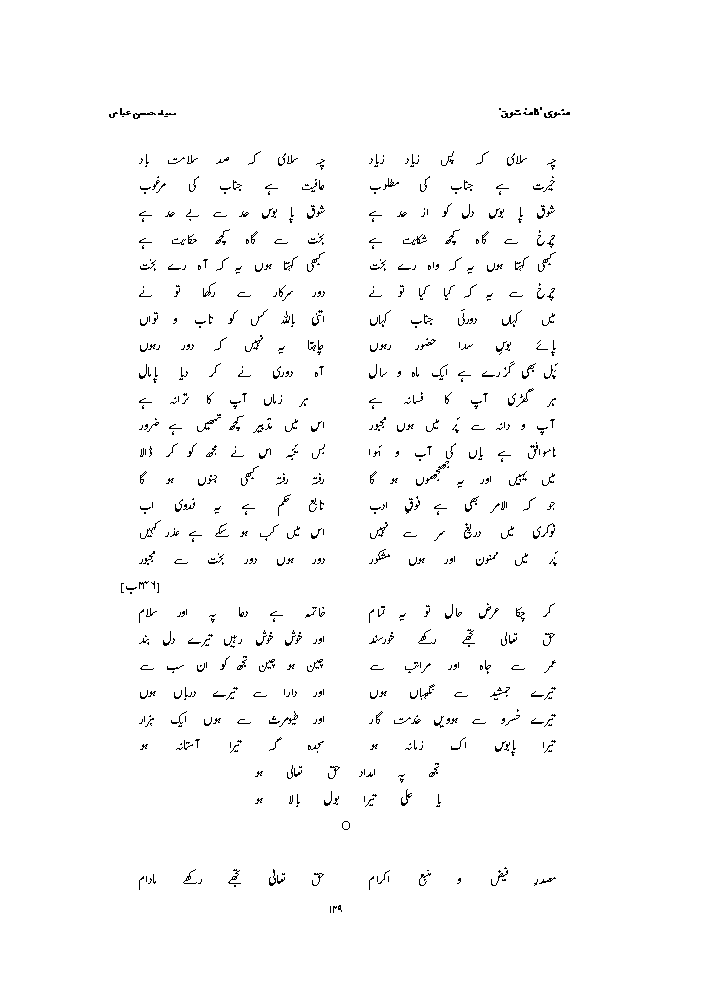 مثنوی "نامۂ شوق" سید حسن عباس
چہ سلامی کہ پس زیاد زیاد چہ سلامی کہ صد سلامت باد
خیرت ہے جناب کی مطلوب عافیت ہے جناب کی مرغوب
شوق پا بوس دل کو از حد ہے شوق پا بوس حد سے بے حد ہے
چرخ سے گاہ کچھ شکایت ہے بخت سے گاہ کچھ حکایت ہے
کبھی کہتا ہوں یہ کہ واہ رے بخت کبھی کہتا ہوں یہ کہ آہ رے بخت
چرخ سے یہ کہ کیا کیا تو نے دور سرکار سے رکھا تو نے
میں کہاں دوریٔ جناب کہاں اتنی باللہ کس کو تاب و تواں
پائے بوسِ سدا حضور رہوں چاہتا یہ نہیں کہ دور رہوں
پَل بھی گزرے ہے ایک ماہ و سال آہ دوری نے کر دیا پامال
ہر گھڑی آپ کا فسانہ ہے ہر زماں آپ کا ترانہ ہے
آب و دانہ سے پَر میں ہوں مجبور اس میں تدبیر کچھ تمھیں ہے ضرور
ناموافق ہے یاں کی آب و ہوا بس تجہ اس نے مجھ کو کر ڈالا
میں یہیں اور یہ ہو گا رفتہ رفتہ کبھی جنوں ہو گا
جو کہ الامر بھی ہے فوقِ ادب تابع حکم ہے یہ فدوی اب
نوکری میں دریغ سر سے نہیں اس میں کب ہو سکے ہے عذر کہیں
پَر میں ممنون اور ہوں مشکور دور ہوں دور بخت سے مجبور
[۲۳۶ب]
کر چکا عرض حال تو یہ تمام خاتمہ ہے دعا پہ اور سلام
حق تعالی تجھے رکھے خورسند اور خوش خوش رہیں تیرے دل بند
عمر سے جاہ اور مراتب سے چین ہو چین تجھ کو ان سب سے
تیرے جمشید سے نگہباں ہوں اور دارا سے تیرے درباں ہوں
تیرے خسرو سے ہوویں خدمت گار اور طیومرث سے ہوں ایک ہزار
تیرا پابوس اک زمانہ ہو سجدہ گہ تیرا آستانہ ہو
تجھ پہ امداد حق تعالی ہو
یا علی تیرا بول بالا ہو
O
مصدرِ فیض و منبع اکرام حق تعالی تجھے رکھے مادام
۱۴۹